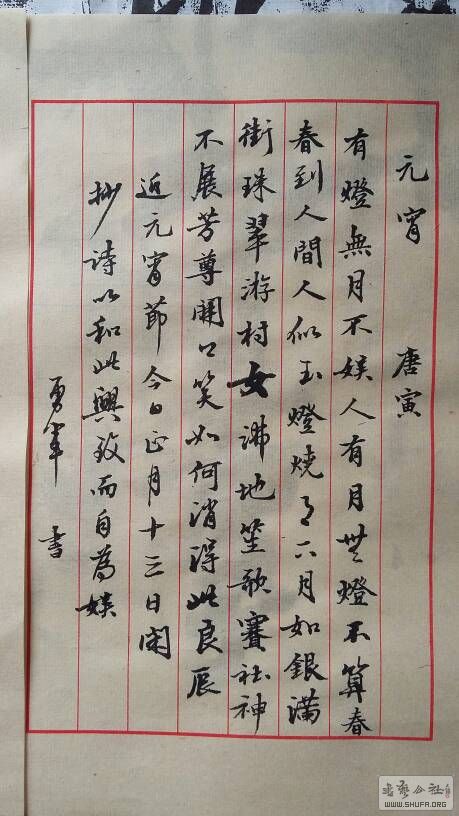 元宵 唐寅
有燈無月不娱人有月無燈不算春
春到人間人似玉燈燒月下月如銀滿
街珠翠游村女沸地笙歌賽社神
不展芳尊開口笑如何消得此良辰
近元宵節今日正月十三日閑
抄詩以和此興致而自為娱
勇軍 書
書藝公社
WWW.SHUFA.ORG